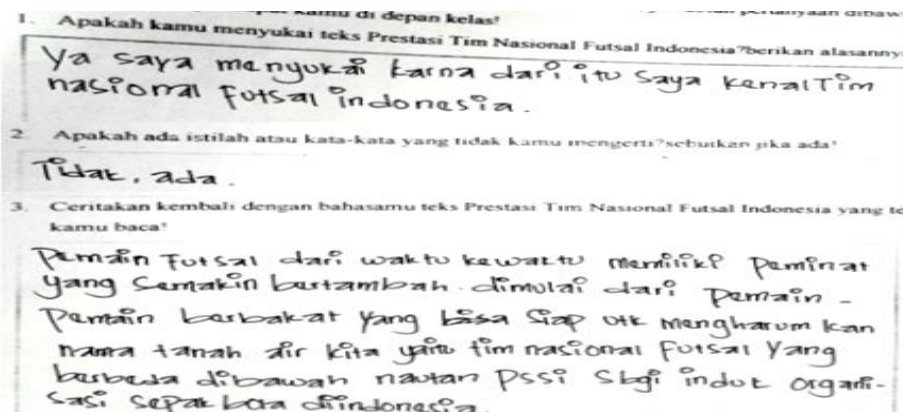 kamu di depan kelas!
1. Apakah kamu menyukai teks Prestasi Tim Nasional Futsal Indonesia?berikan alasanny
Ya saya menyukai karna dari itu saya kenal Tim
nasional Futsal indonesia.
2. Apakah ada istilah atau kata-kata yang tidak kamu mengerti?sebutkan jika ada!
Tidak, ada.
3. Ceritakan kembali dengan bahasamu teks Prestasi Tim Nasional Futsal Indonesia yang te
kamu baca!
Pemain Futsal dari waktu kewaktu memiliki peminat
yang Semakin bertambah. dimulai dari pemain -
Pemain berbakat yang bisa siap utk mengharum kan
nama tanah air kita yaitu tim nasional Futsal Yang
berbeda dibawah nautan Pssi sbgi induk organi-
sasi sepak bora diindonesia.